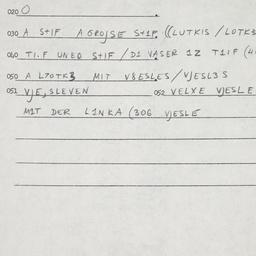 020 O
030 A S+IF A GROJSE S+IF ((LUTKIS / LOTKS
040 TI.F UNEO S+IF / DI VASER IZ TIIF (4
050 A L7OTK3 MIT V8ESLES / VJESL3S
051 VJE,SLEVEN 052 VELXE VJESLE
MIT DER LINKA (306 VJESLE